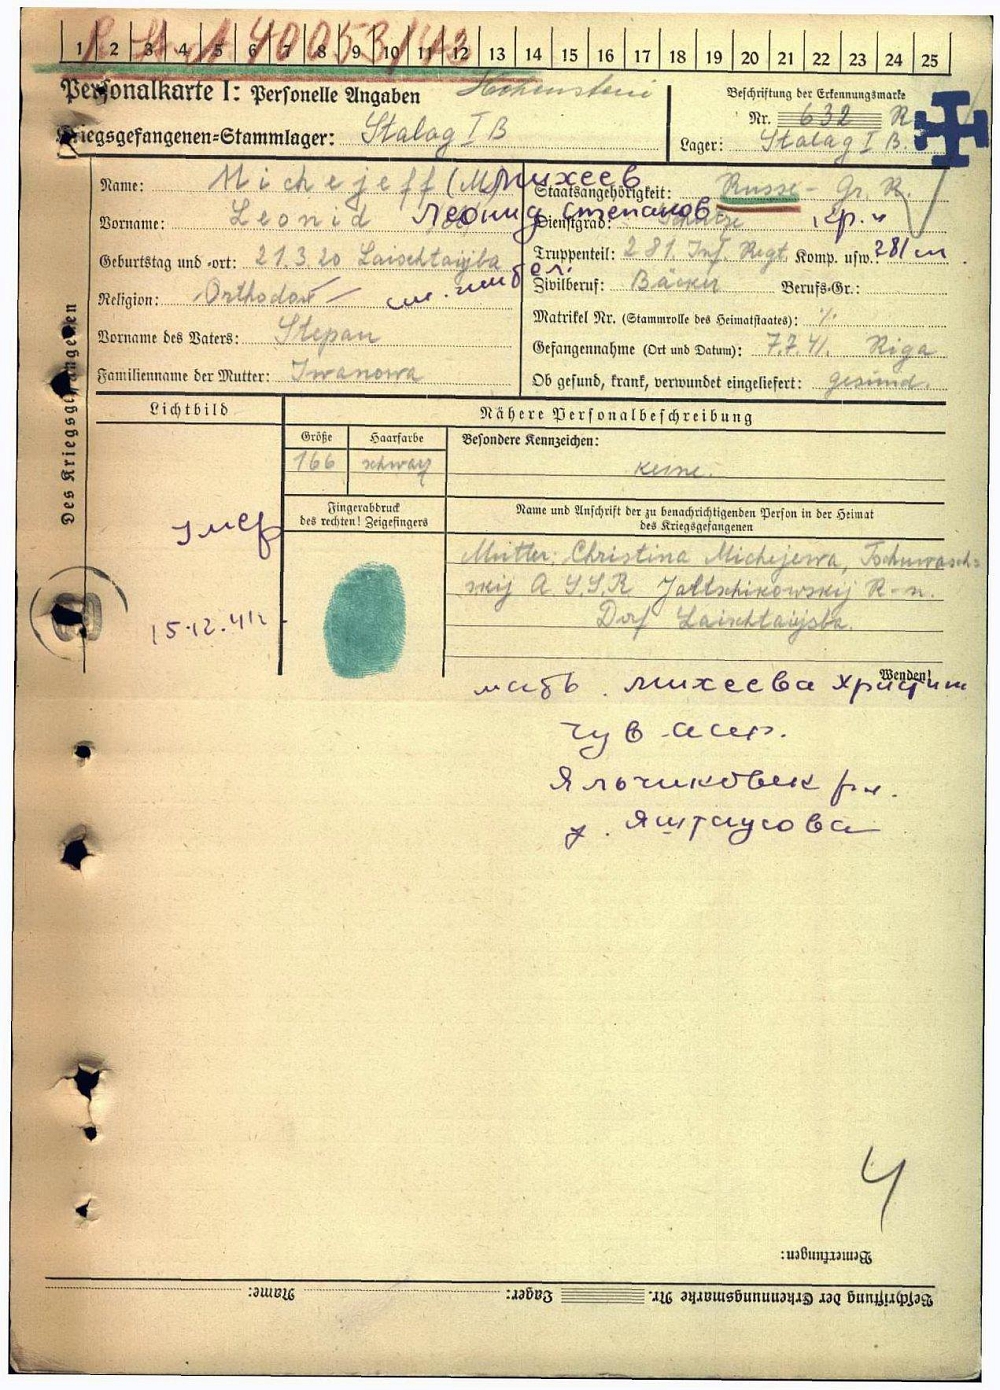 R. St. A 40053/43
1 2 3 4 5 6 7 8 9 10 11 12 13 14 15 16 17 18 19 20 21 22 23 24 25
Personalkarte I: Personelle Angaben
Hohenstein
Kriegsgefangenen-Stammlager: Stalag I B
Beschriftung der Erkennungsmarke
Nr. 632 R
Lager: Stalag I B.
Des Kriegsgefangenen
Name: Michejeff (M) Михеев
Vorname: Leonid Леонид Степанов
Geburtstag und -ort: 21.3.20 Laischtaijba
Religion: Orthodox
Vorname des Vaters: Stepan
Familienname der Mutter: Iwanowa
Staatsangehörigkeit: Russe - Gr. R.
Dienstgrad: Schütze кр.
Truppenteil: 281. Inf. Regt. Komp. usw.: 281
Zivilberuf: Bäcker Berufs-Gr.:
Matrikel Nr. (Stammrolle des Heimatstaates): %
Gefangennahme (Ort und Datum): 7.7.41. Riga
Ob gesund, krank, verwundet eingeliefert: gesund.
Lichtbild
Nähere Personalbeschreibung
Größe Haarfarbe Besondere Kennzeichen:
166 schwarz keine.
Fingerabdruck
des rechten! Zeigefingers
Name und Anschrift der zu benachrichtigenden Person in der Heimat
des Kriegsgefangenen
Mutter: Christina Michejewa, Tschuwasch-
skij A.S.S.R Jaltschikowskij R-n.
Dorf Laischtaijsba.
умер
15.12.41г
Wenden!
мать. Михеева Христин
Чув асср.
Яльчиковск рн.
д. Яштаусова
4
Bemerkungen:
Beschriftung der Erkennungsmarke Nr. Lager: Name: